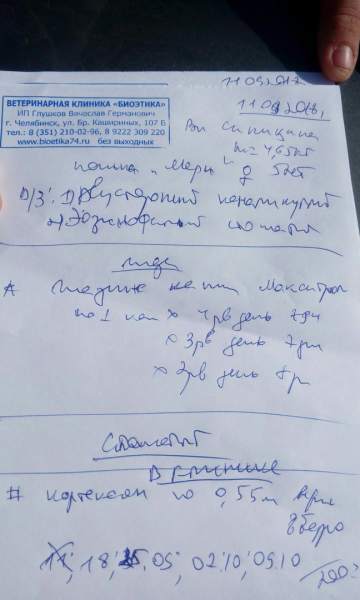 11.09.2018
ВЕТЕРИНАРНАЯ КЛИНИКА «БИОЭТИКА»
ИП Глушков Вячеслав Германович
г. Челябинск, ул. Бр. Кашириных, 107 Б
тел.: 8 (351) 210-02-96, 8 9222 309 220
www.bioetika74.ru без выходных
11.09.2018г
m = 4,65кг
кошка "Мери" 5 лет
D/З: 1) Двусторонний каналикулит
2) Эозинофильный стоматит
глаза
Глазные капли Макситрол
по 1 кап × 4 р в день 7 дн
× 3 р в день 7 дн
× 2 р в день
Стоматит
В клинике
# кортексон по 0,55 в бедро
11, 18, 25.09, 02.10, 09.10
200